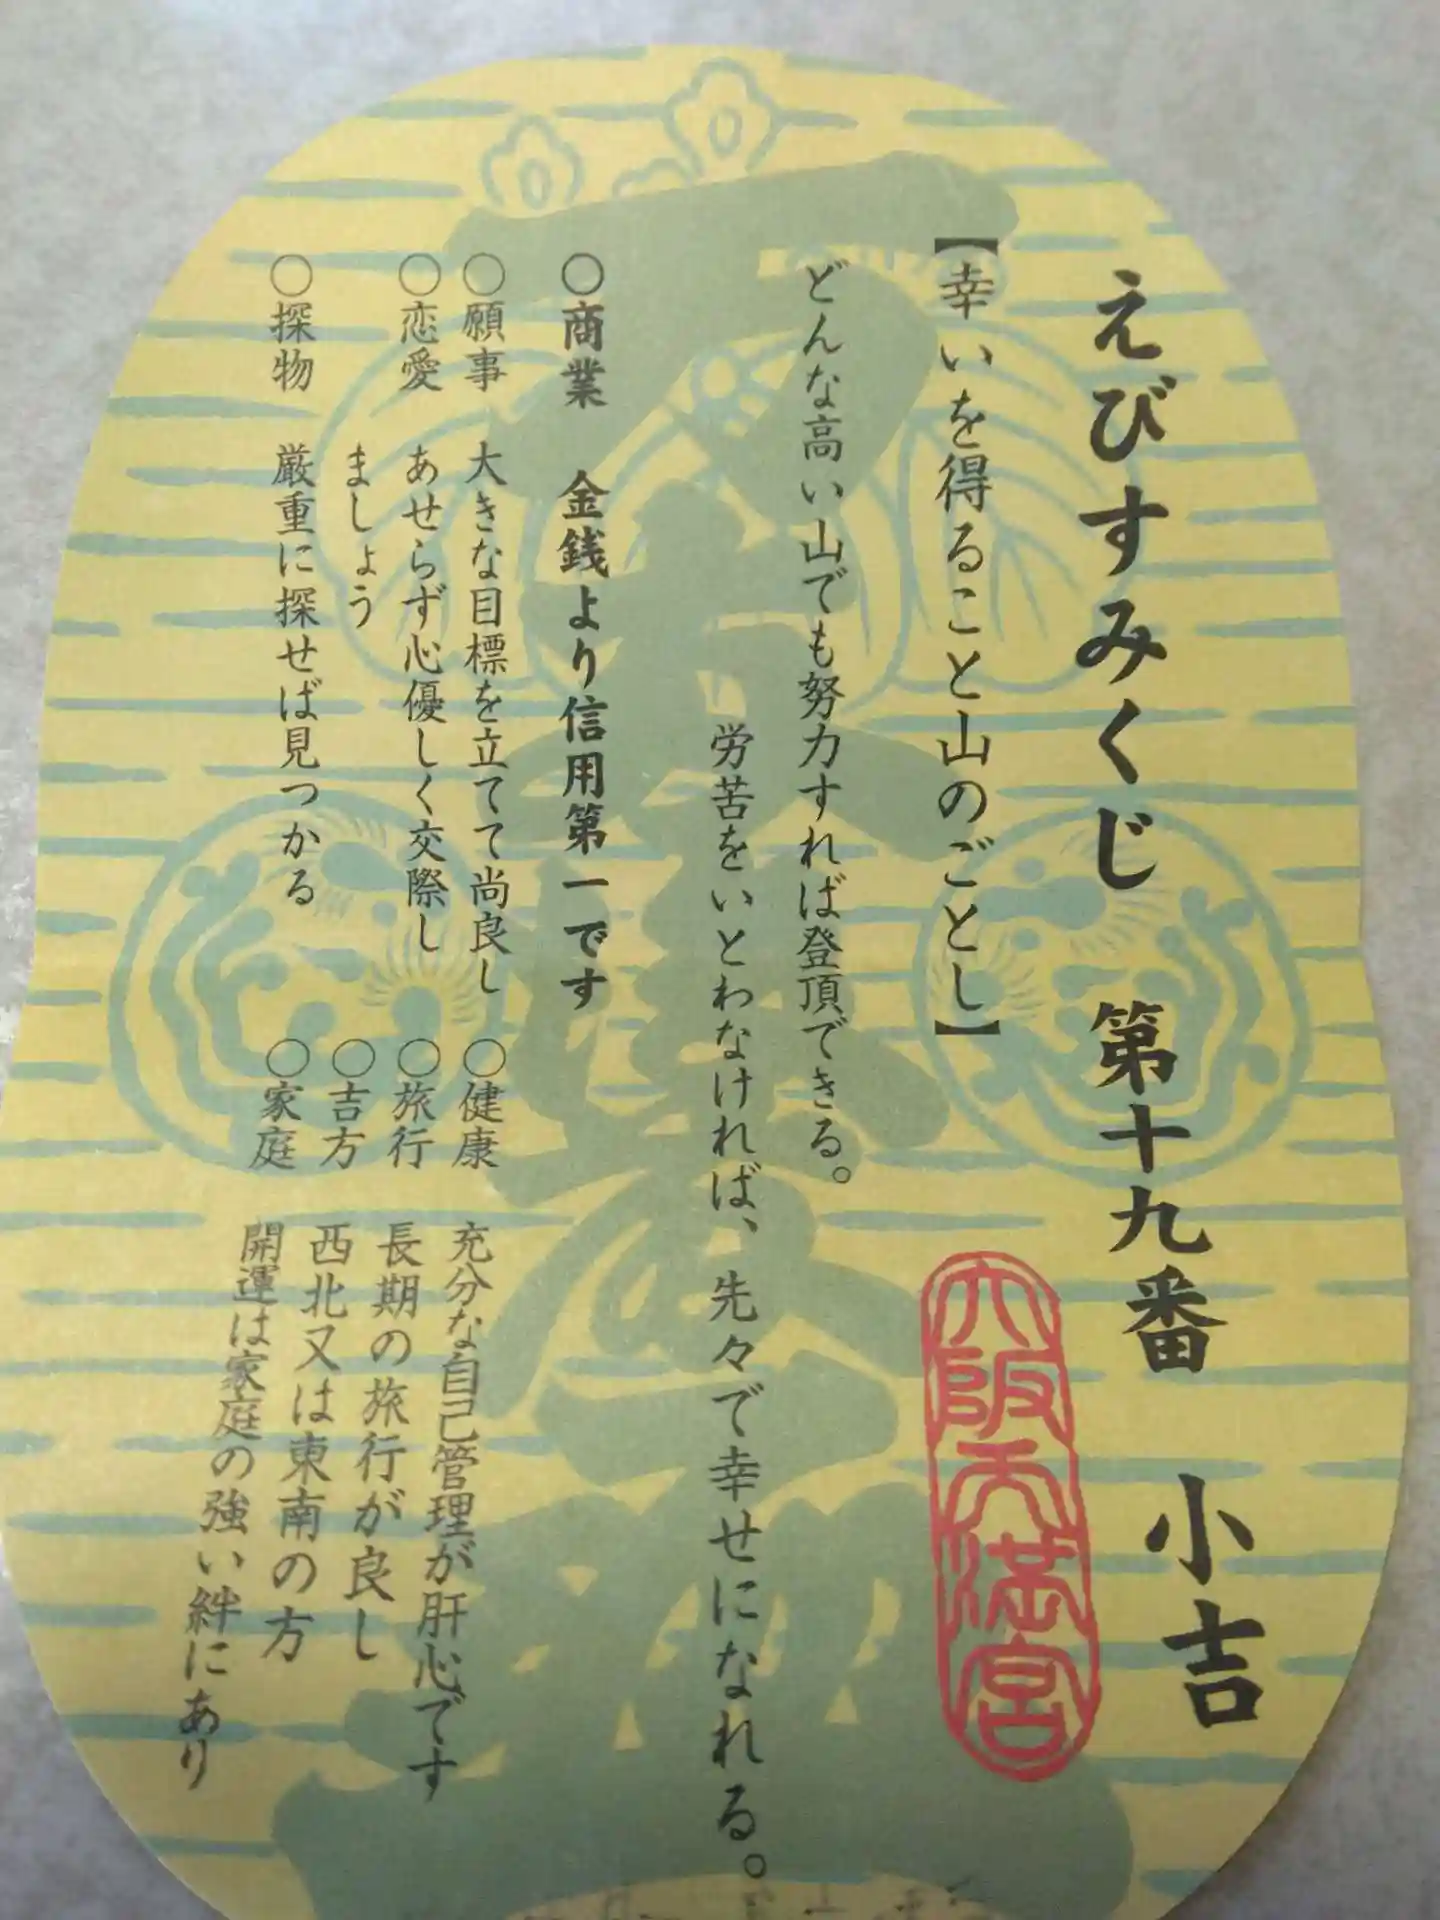 えびすみくじ 第十九番 小吉
【幸いを得ること山のごとし】
大阪天満宮
どんな高い山でも努力すれば登頂できる。
労苦をいとわなければ、先々で幸せになれる。
○商業 金銭より信用第一です
○願事 大きな目標を立てて尚良し
○恋愛 あせらず心優しく交際し
ましょう
○探物 厳重に探せば見つかる
○健康 充分な自己管理が肝心です
○旅行 長期の旅行が良し
○吉方 西北又は東南の方
○家庭 開運は家庭の強い絆にあり